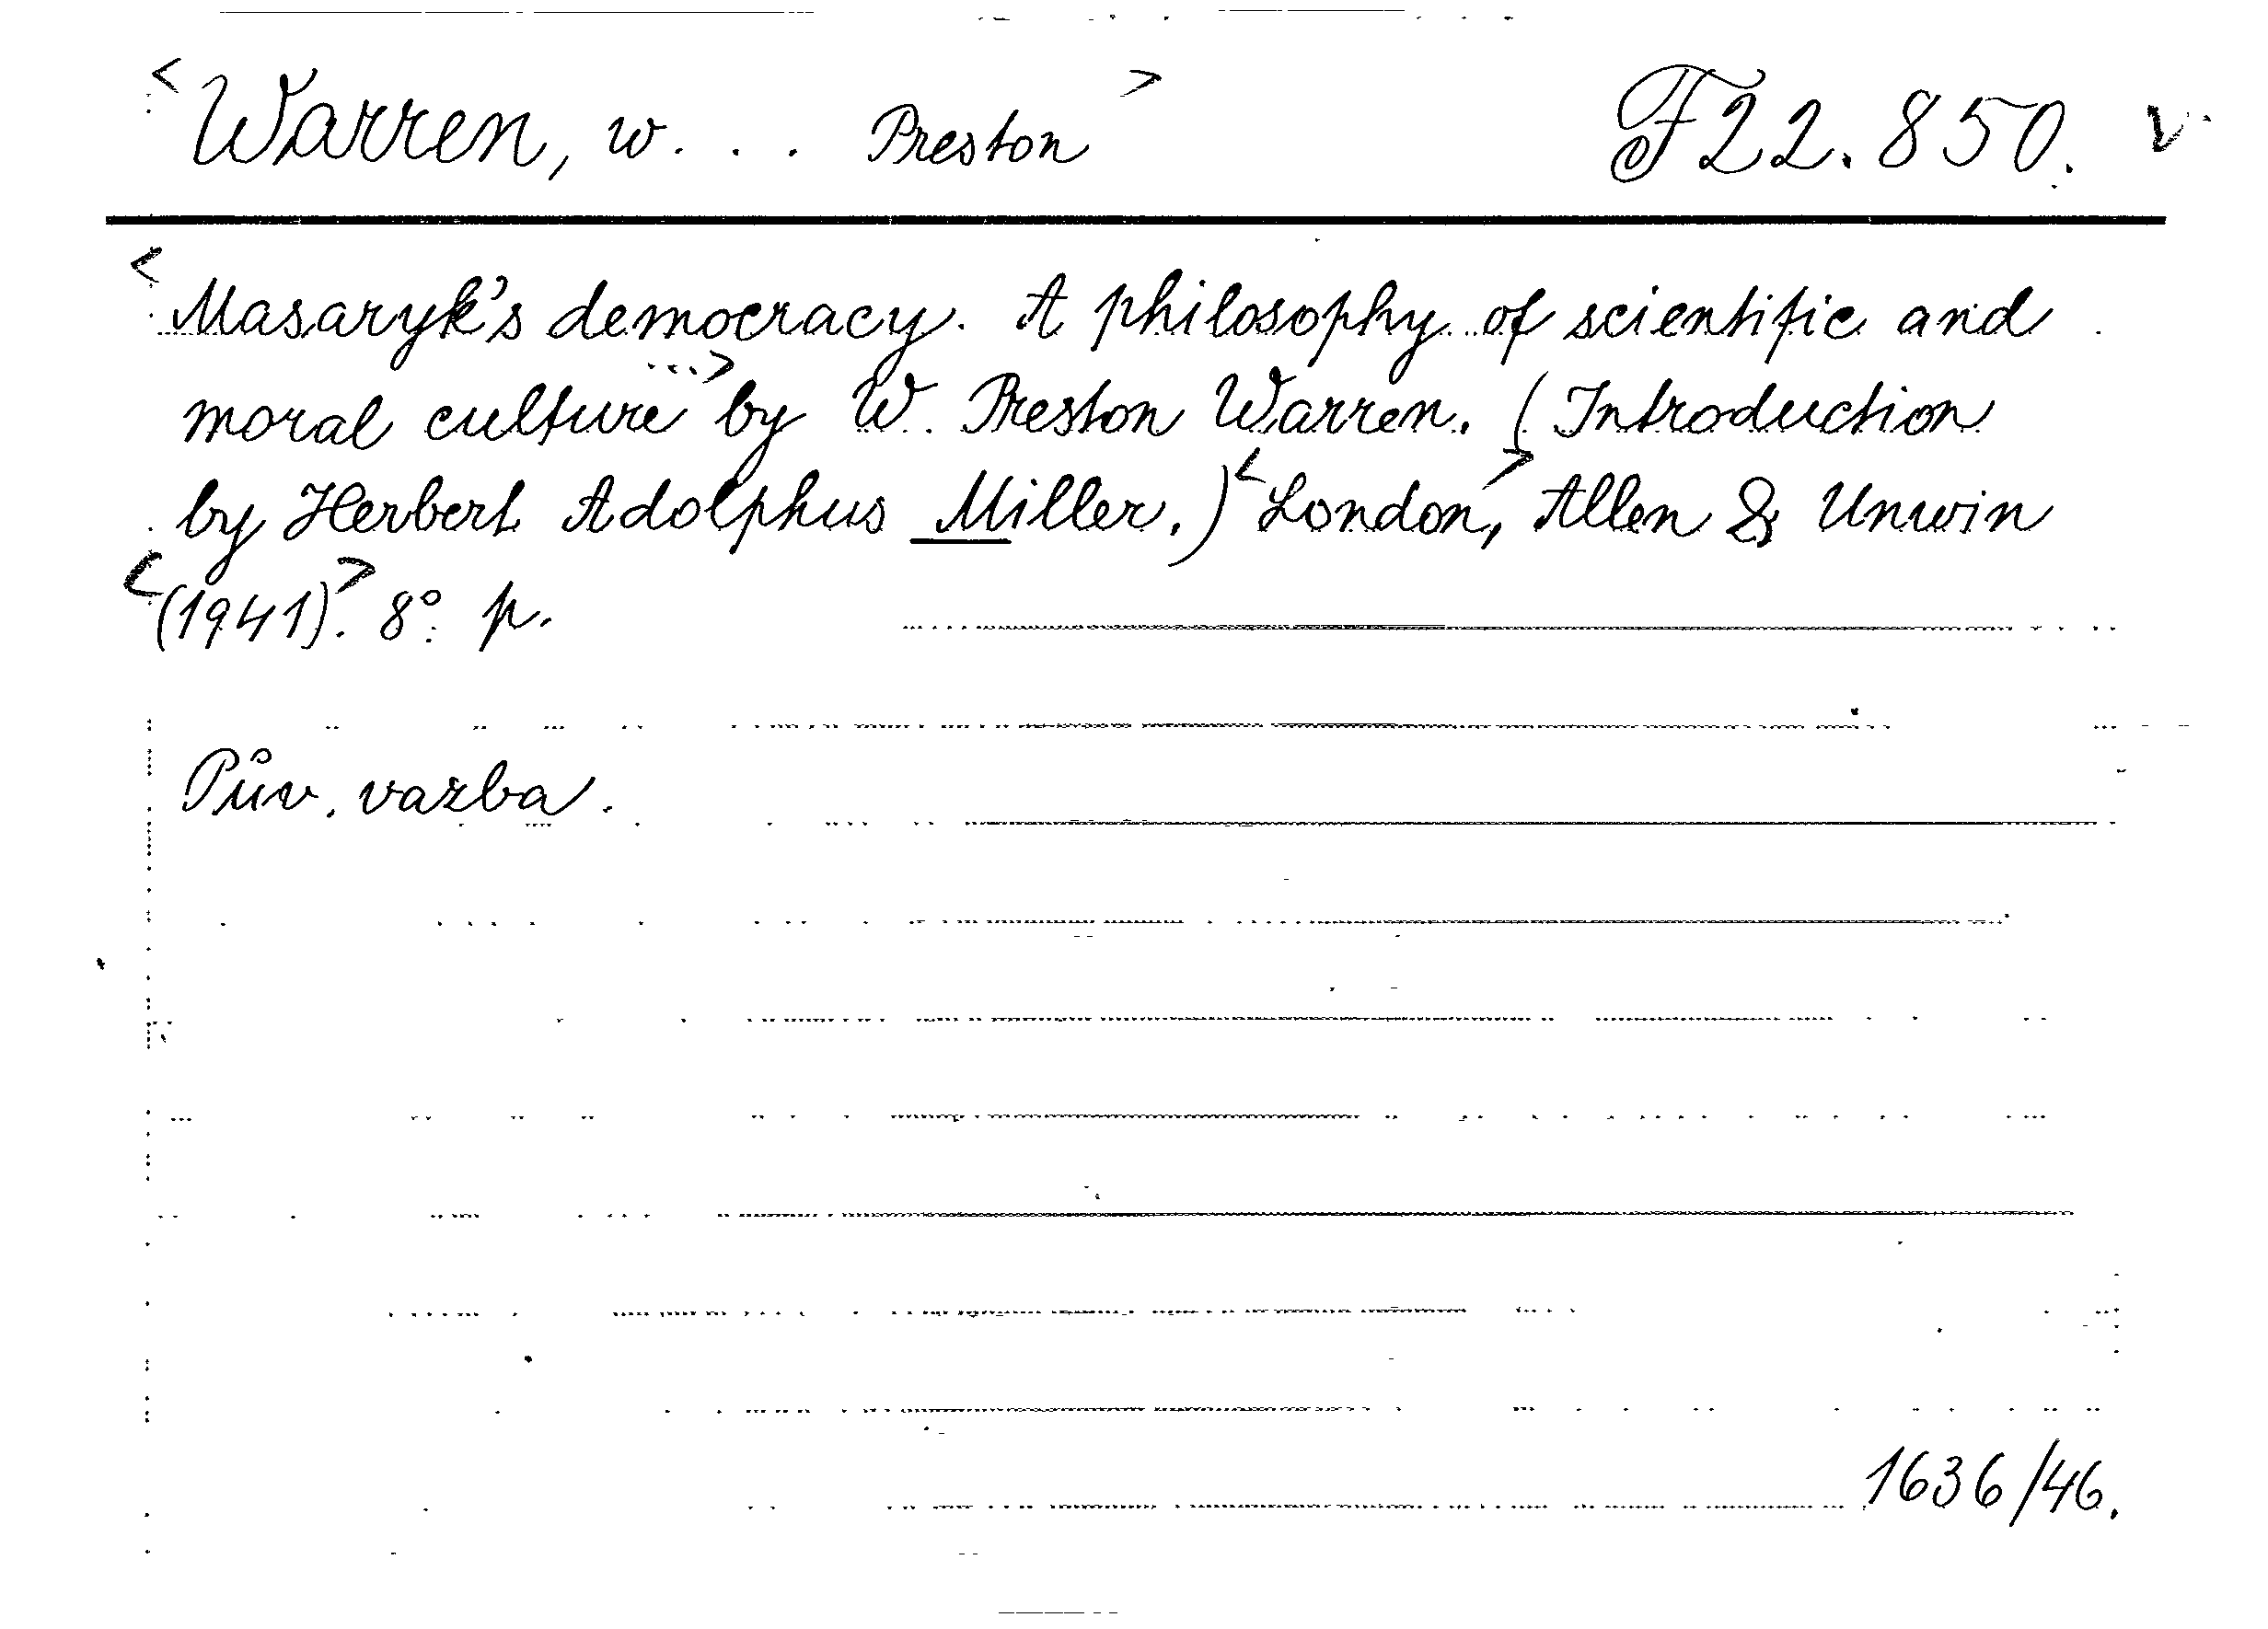 <Warren, W. . . Preston> F 22.850. v
<Masaryk's democracy. A philosophy of scientific and
moral culture ...> by W. Preston Warren. (Introduction
by Herbert Adolphus Miller.) <London,> Allen & Unwin
<(1941)>. 8°. p.
Pův. vazba.
1636/46.